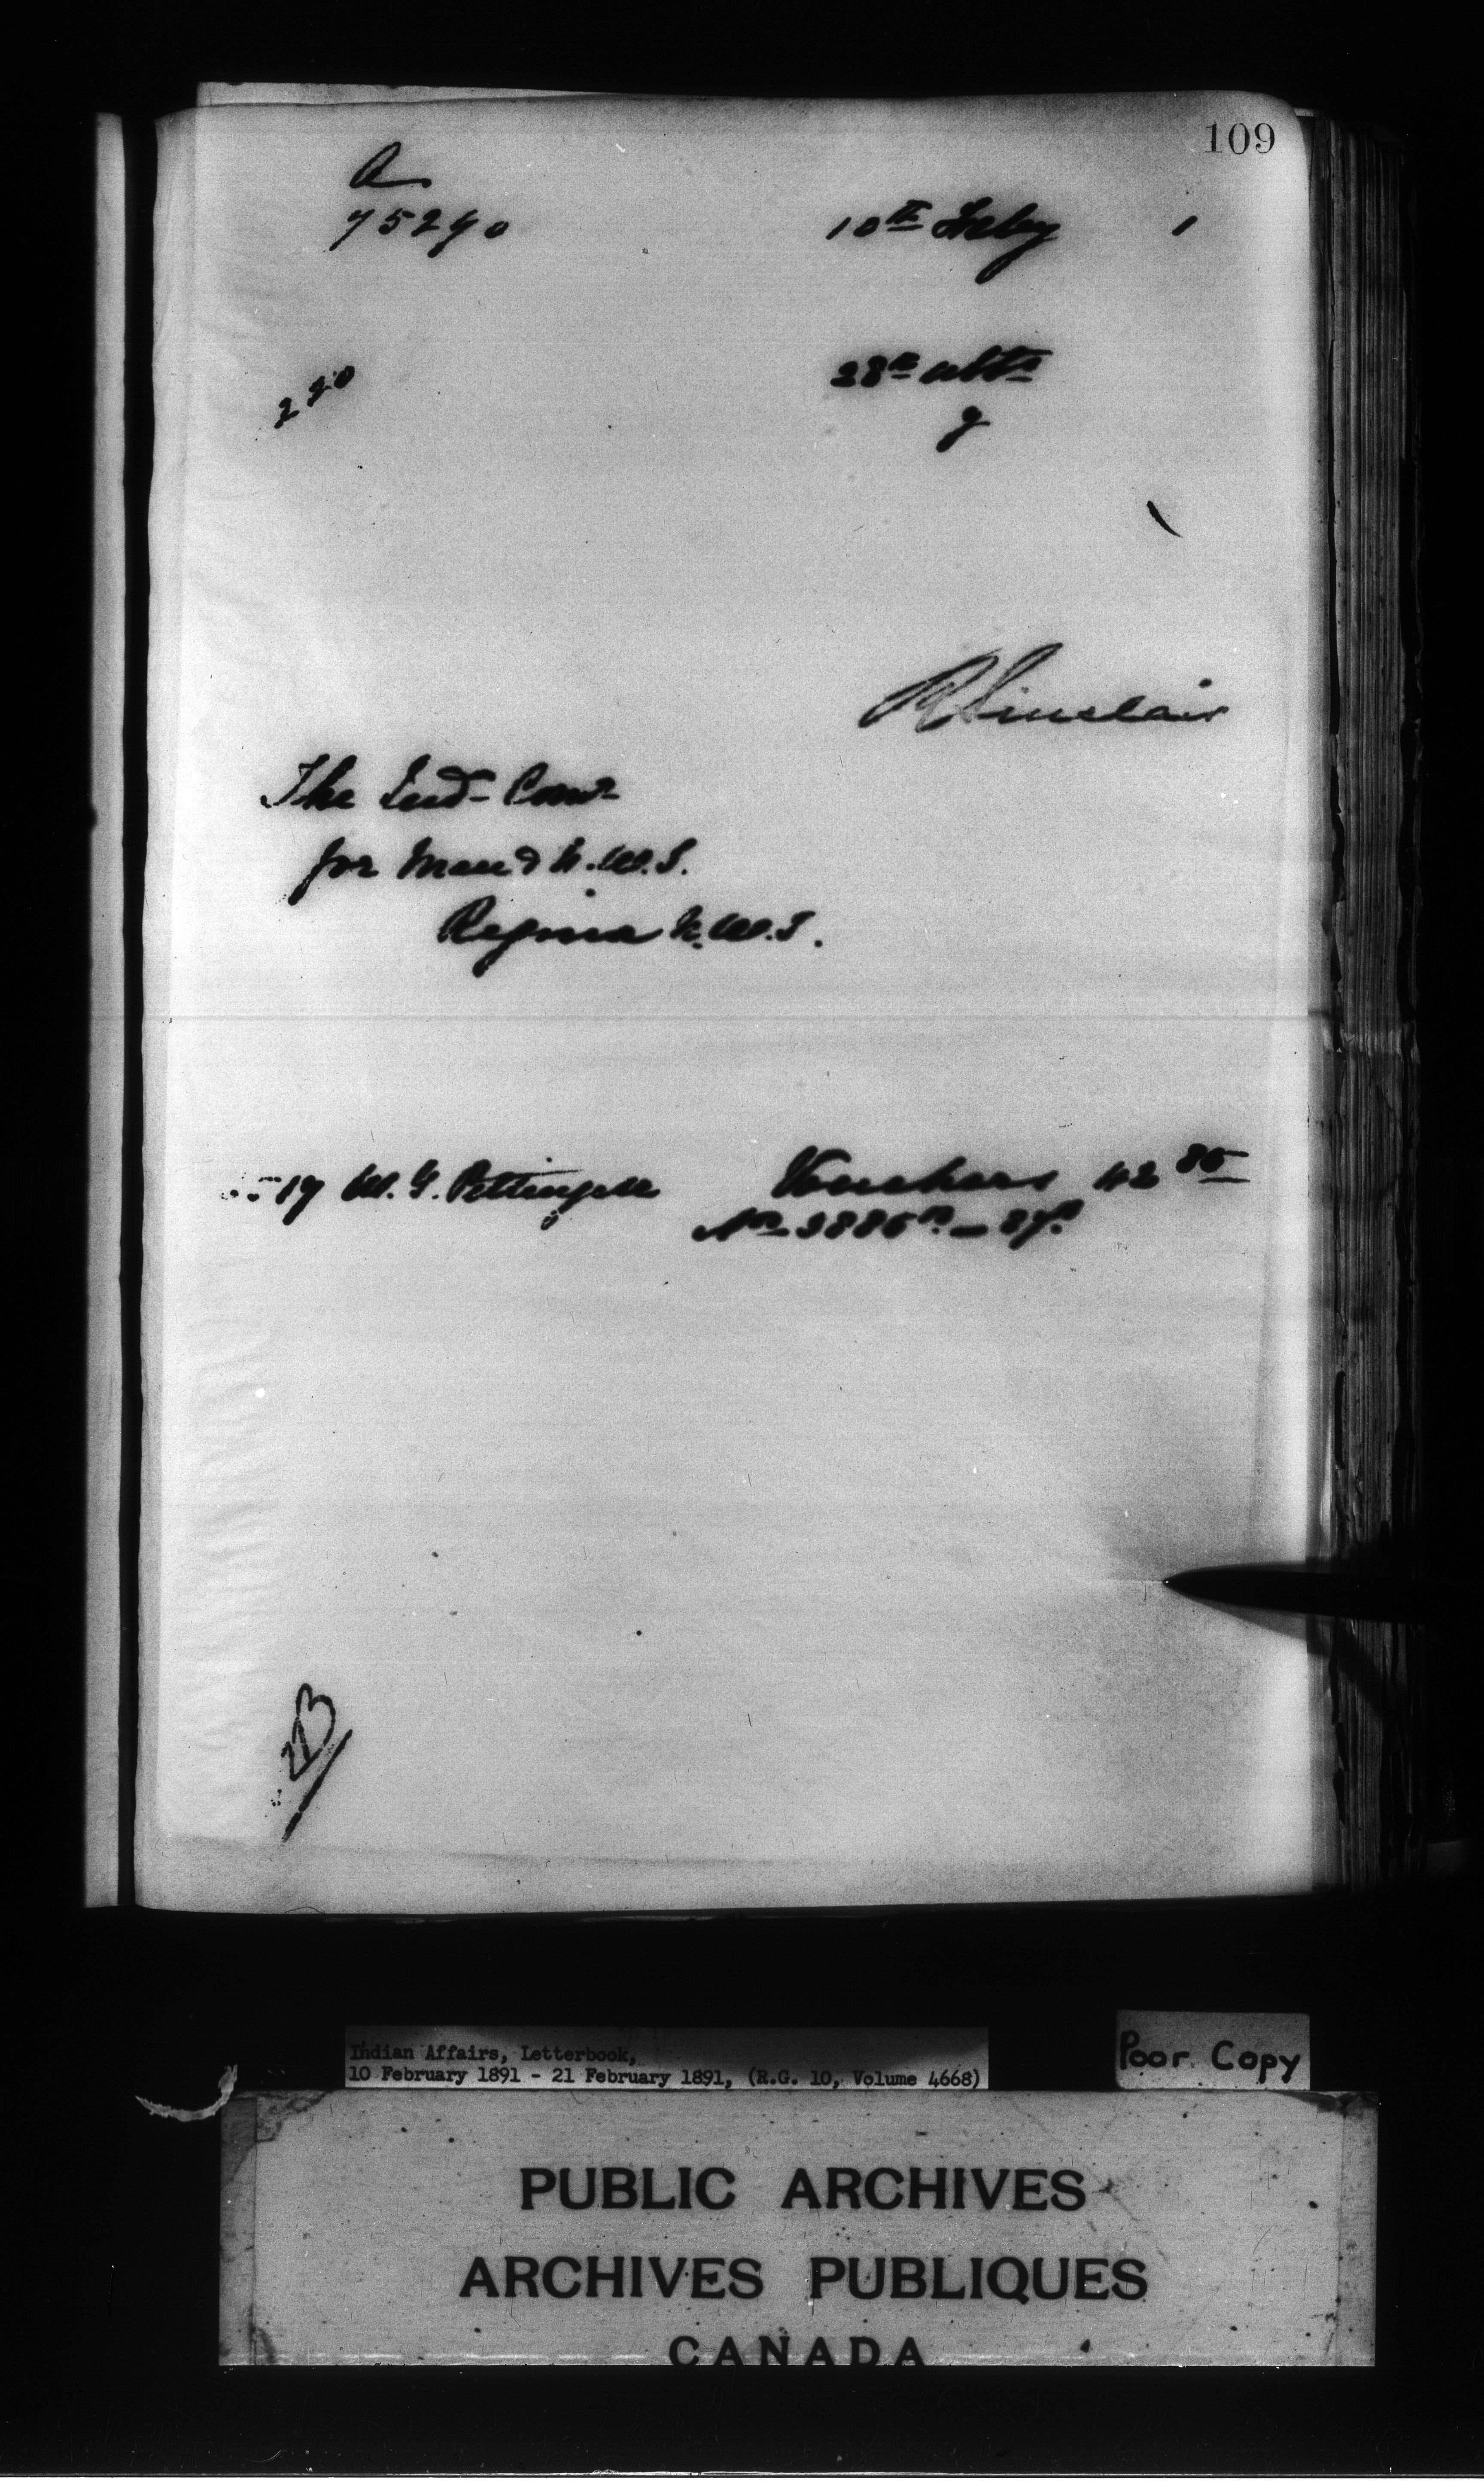 109
A
75290
10th Feby 1
220
28th ulto
g
R Sinclair
The Ind. Comr
for Man & N.W.T.
Regina N.W.T.
17 W. G. Pettingell Vouchers 42 85
Nos 3886 — 87
B
Indian Affairs, Letterbook,
10 February 1891 - 21 February 1891, (R.G. 10, Volume 4668)
Poor Copy
PUBLIC ARCHIVES
ARCHIVES PUBLIQUES
CANADA